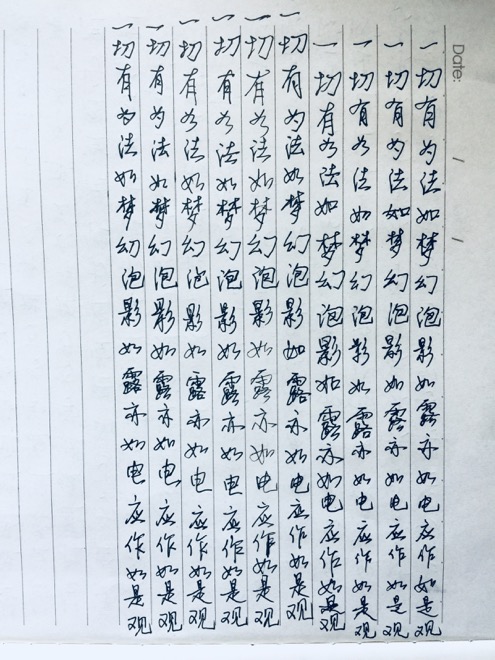 Date: / /
一切有为法如梦幻泡影如露亦如电应作如是观
一切有为法如梦幻泡影如露亦如电应作如是观
一切有为法如梦幻泡影如露亦如电应作如是观
一切有为法如梦幻泡影如露亦如电应作如是观
一切有为法如梦幻泡影如露亦如电应作如是观
一切有为法如梦幻泡影如露亦如电应作如是观
一切有为法如梦幻泡影如露亦如电应作如是观
一切有为法如梦幻泡影如露亦如电应作如是观
一切有为法如梦幻泡影如露亦如电应作如是观
一切有为法如梦幻泡影如露亦如电应作如是观